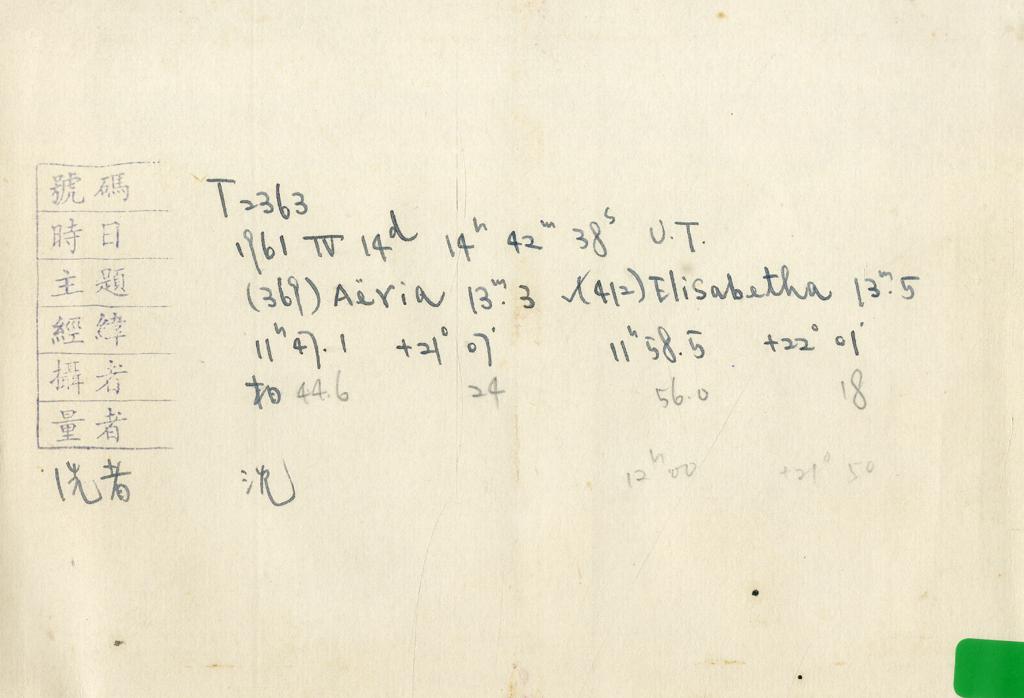 號碼 T2363
時日 1961 IV 14ᵈ 14ʰ 42ᵐ 38ˢ U.T.
主題 (369) Aëria 13ᵐ.3 √(412) Elisabetha 13ᵐ.5
經緯 11ʰ47.1 +21° 07' 11ʰ58.5 +22° 01'
攝者 44.6 24 56.0 18
量者
洗者 沈 12ʰ00 +21° 50